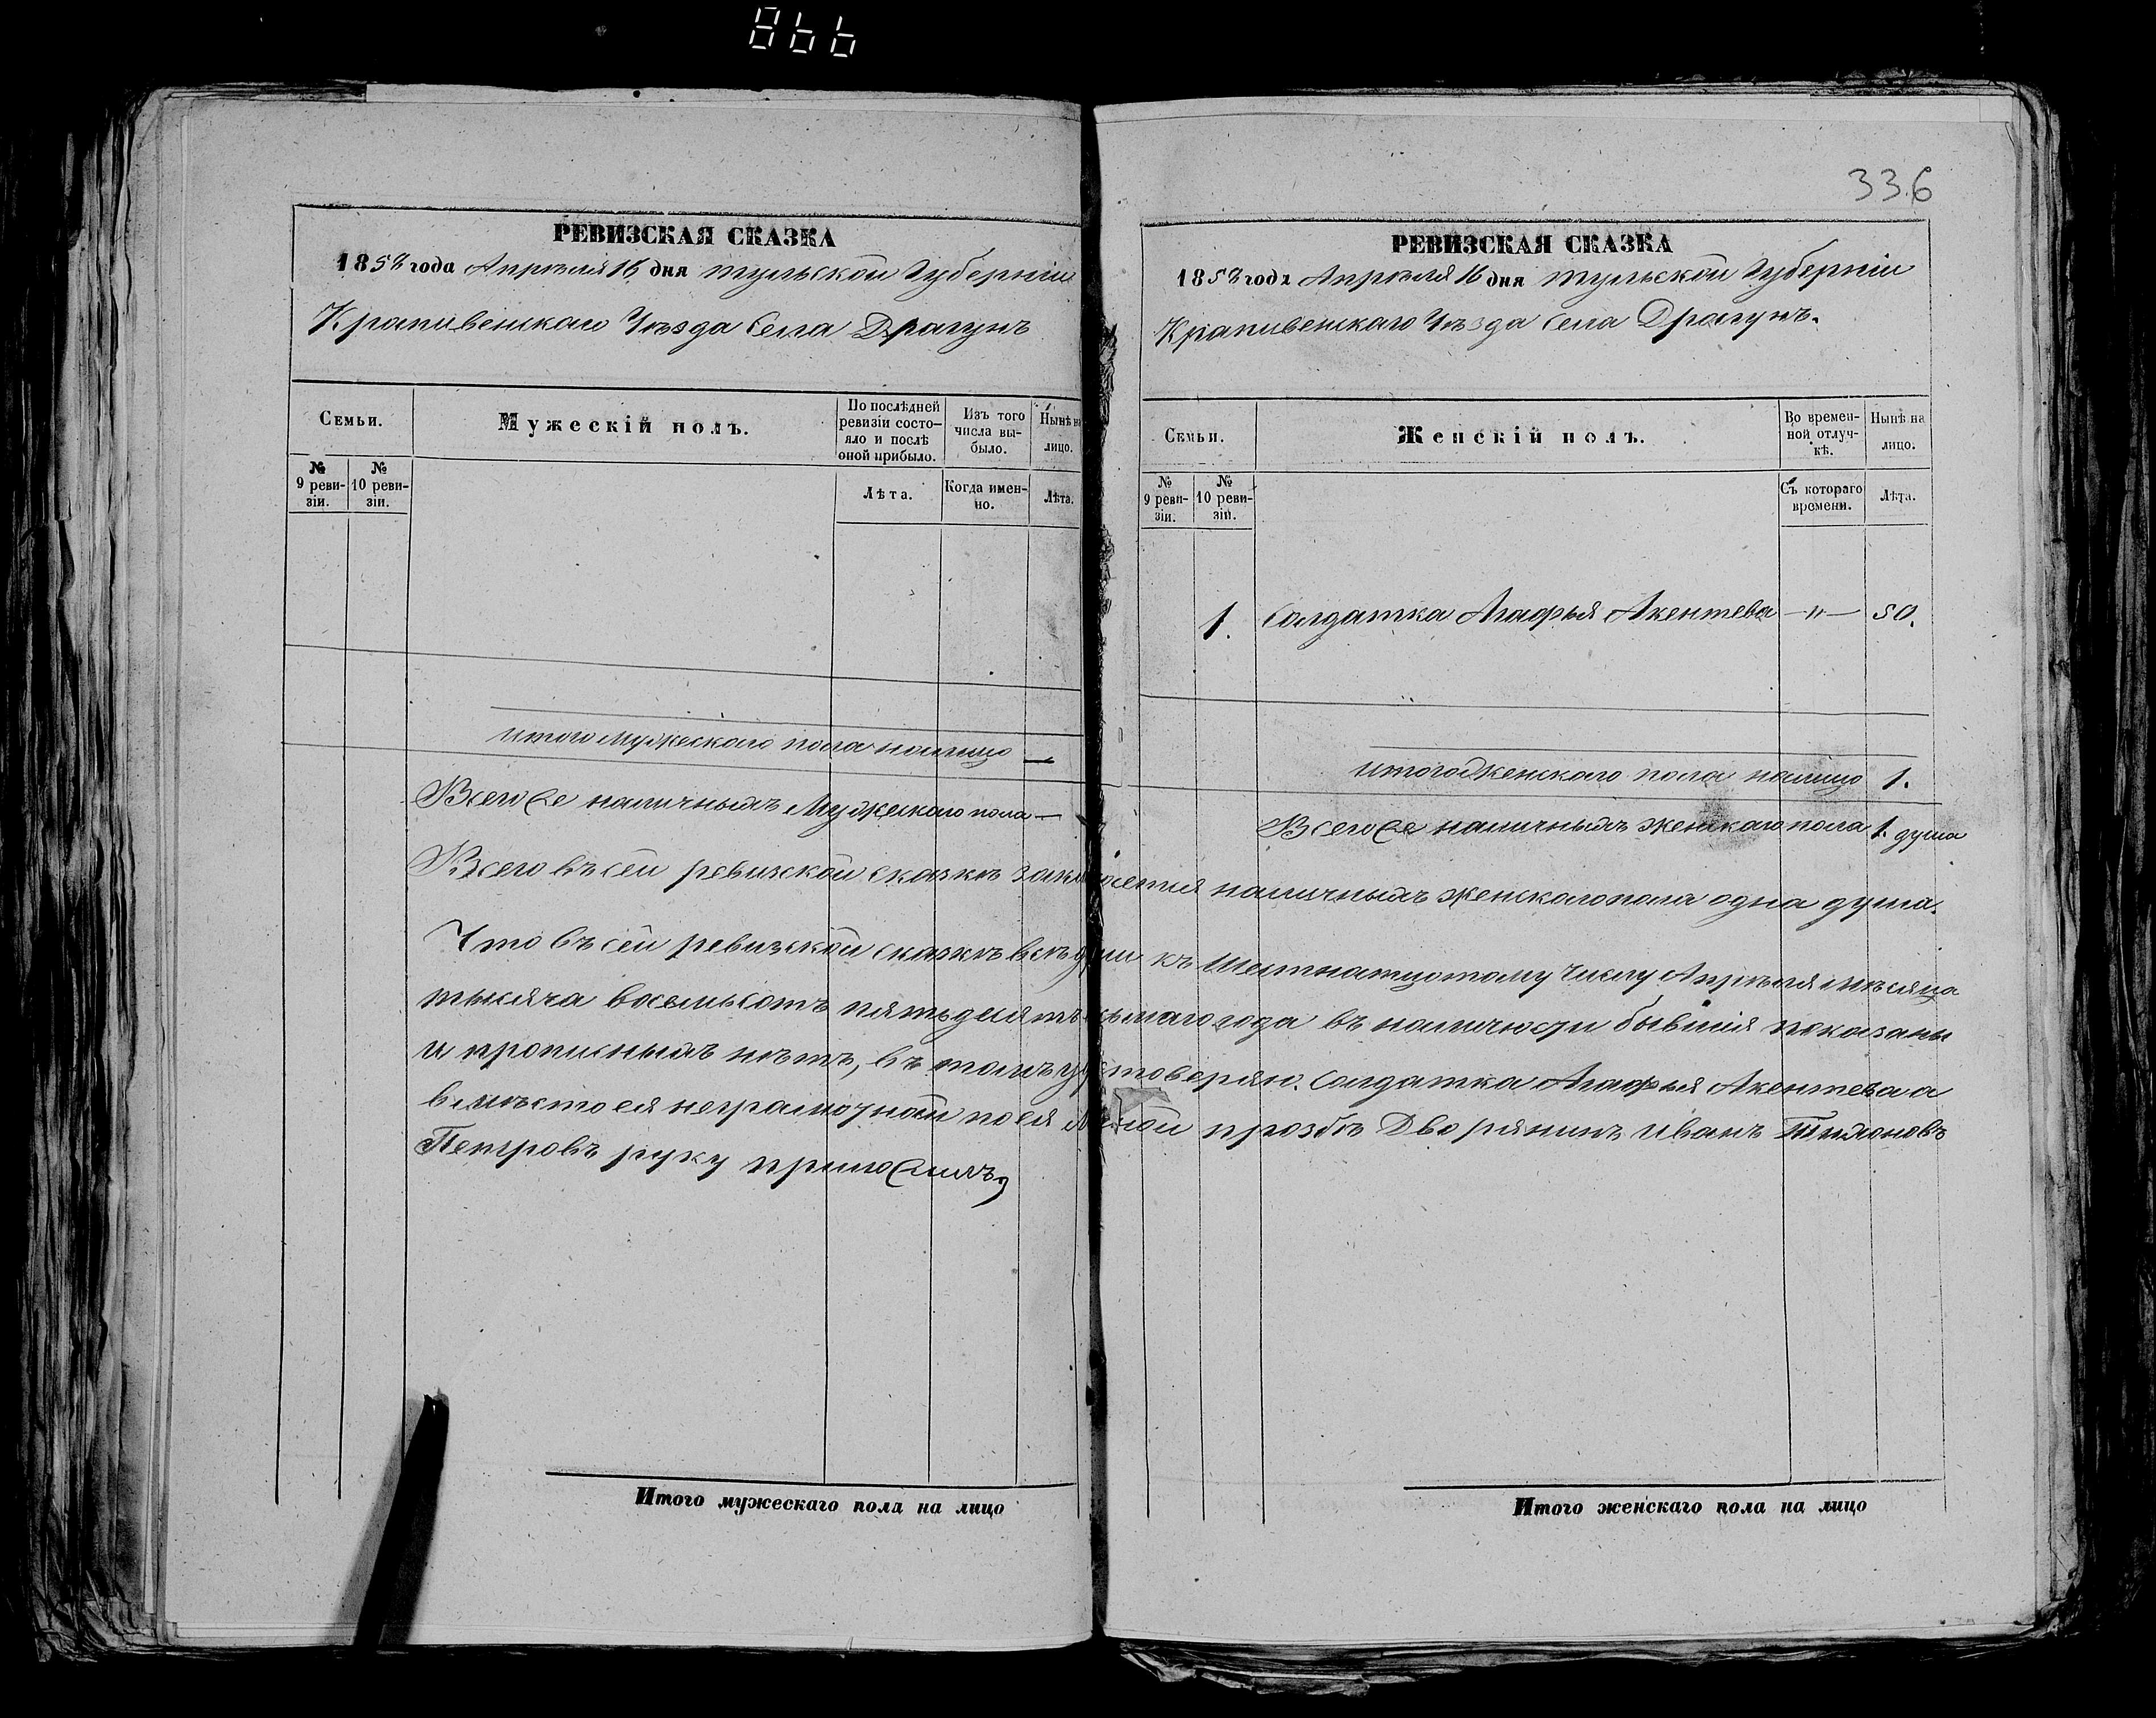 866
336
РЕВИЗСКАЯ СКАЗКА
1858 года Апрѣля 16 дня Тульской Губерніи
Крапивенскаго Уѣзда Села Драгунъ
Семьи.
Мужескій полъ.
По послѣдней ревизіи состояло и послѣ оной прибыло.
Изъ того числа выбыло.
Нынѣ на лицо.
№ 9 ревизіи.
№ 10 ревизіи.
Лѣта.
Когда именно.
Лѣта.
итого мужескаго пола налицо —
Всего Се наличныхъ Мужескаго пола —
РЕВИЗСКАЯ СКАЗКА
1858 года Апрѣля 16 дня Тульской Губерніи
Крапивенскаго Уѣзда Села Драгунъ.
Семьи.
Женскій полъ.
Во временной отлучкѣ.
Нынѣ на лицо.
№ 9 ревизіи.
№ 10 ревизіи.
Съ котораго времени.
Лѣта.
1. Солдатка Агафья Акентева —"— 50.
итого женскаго пола налицо 1.
Всего Се наличныхъ женскаго пола 1. душа
Всего въ сей ревизской сказкѣ наличныхъ женскаго пола одна душа.
Что въ сей ревизской сказкѣ всѣ души къ Шестнатцотому Числу Апрѣля мѣсяца
тысяча восемьсотъ пятьдесятъ осьмаго года въ наличности бывшія показаны
и прописныхъ нѣтъ, въ томъ удостоверяю. Солдатка Агафья Акентева а
вмѣсто ея неграмотной по ея личной прозбѣ Дворянинъ Иванъ
Петровъ руку приложилъ
Итого мужескаго пола на лицо
Итого женскаго пола на лицо